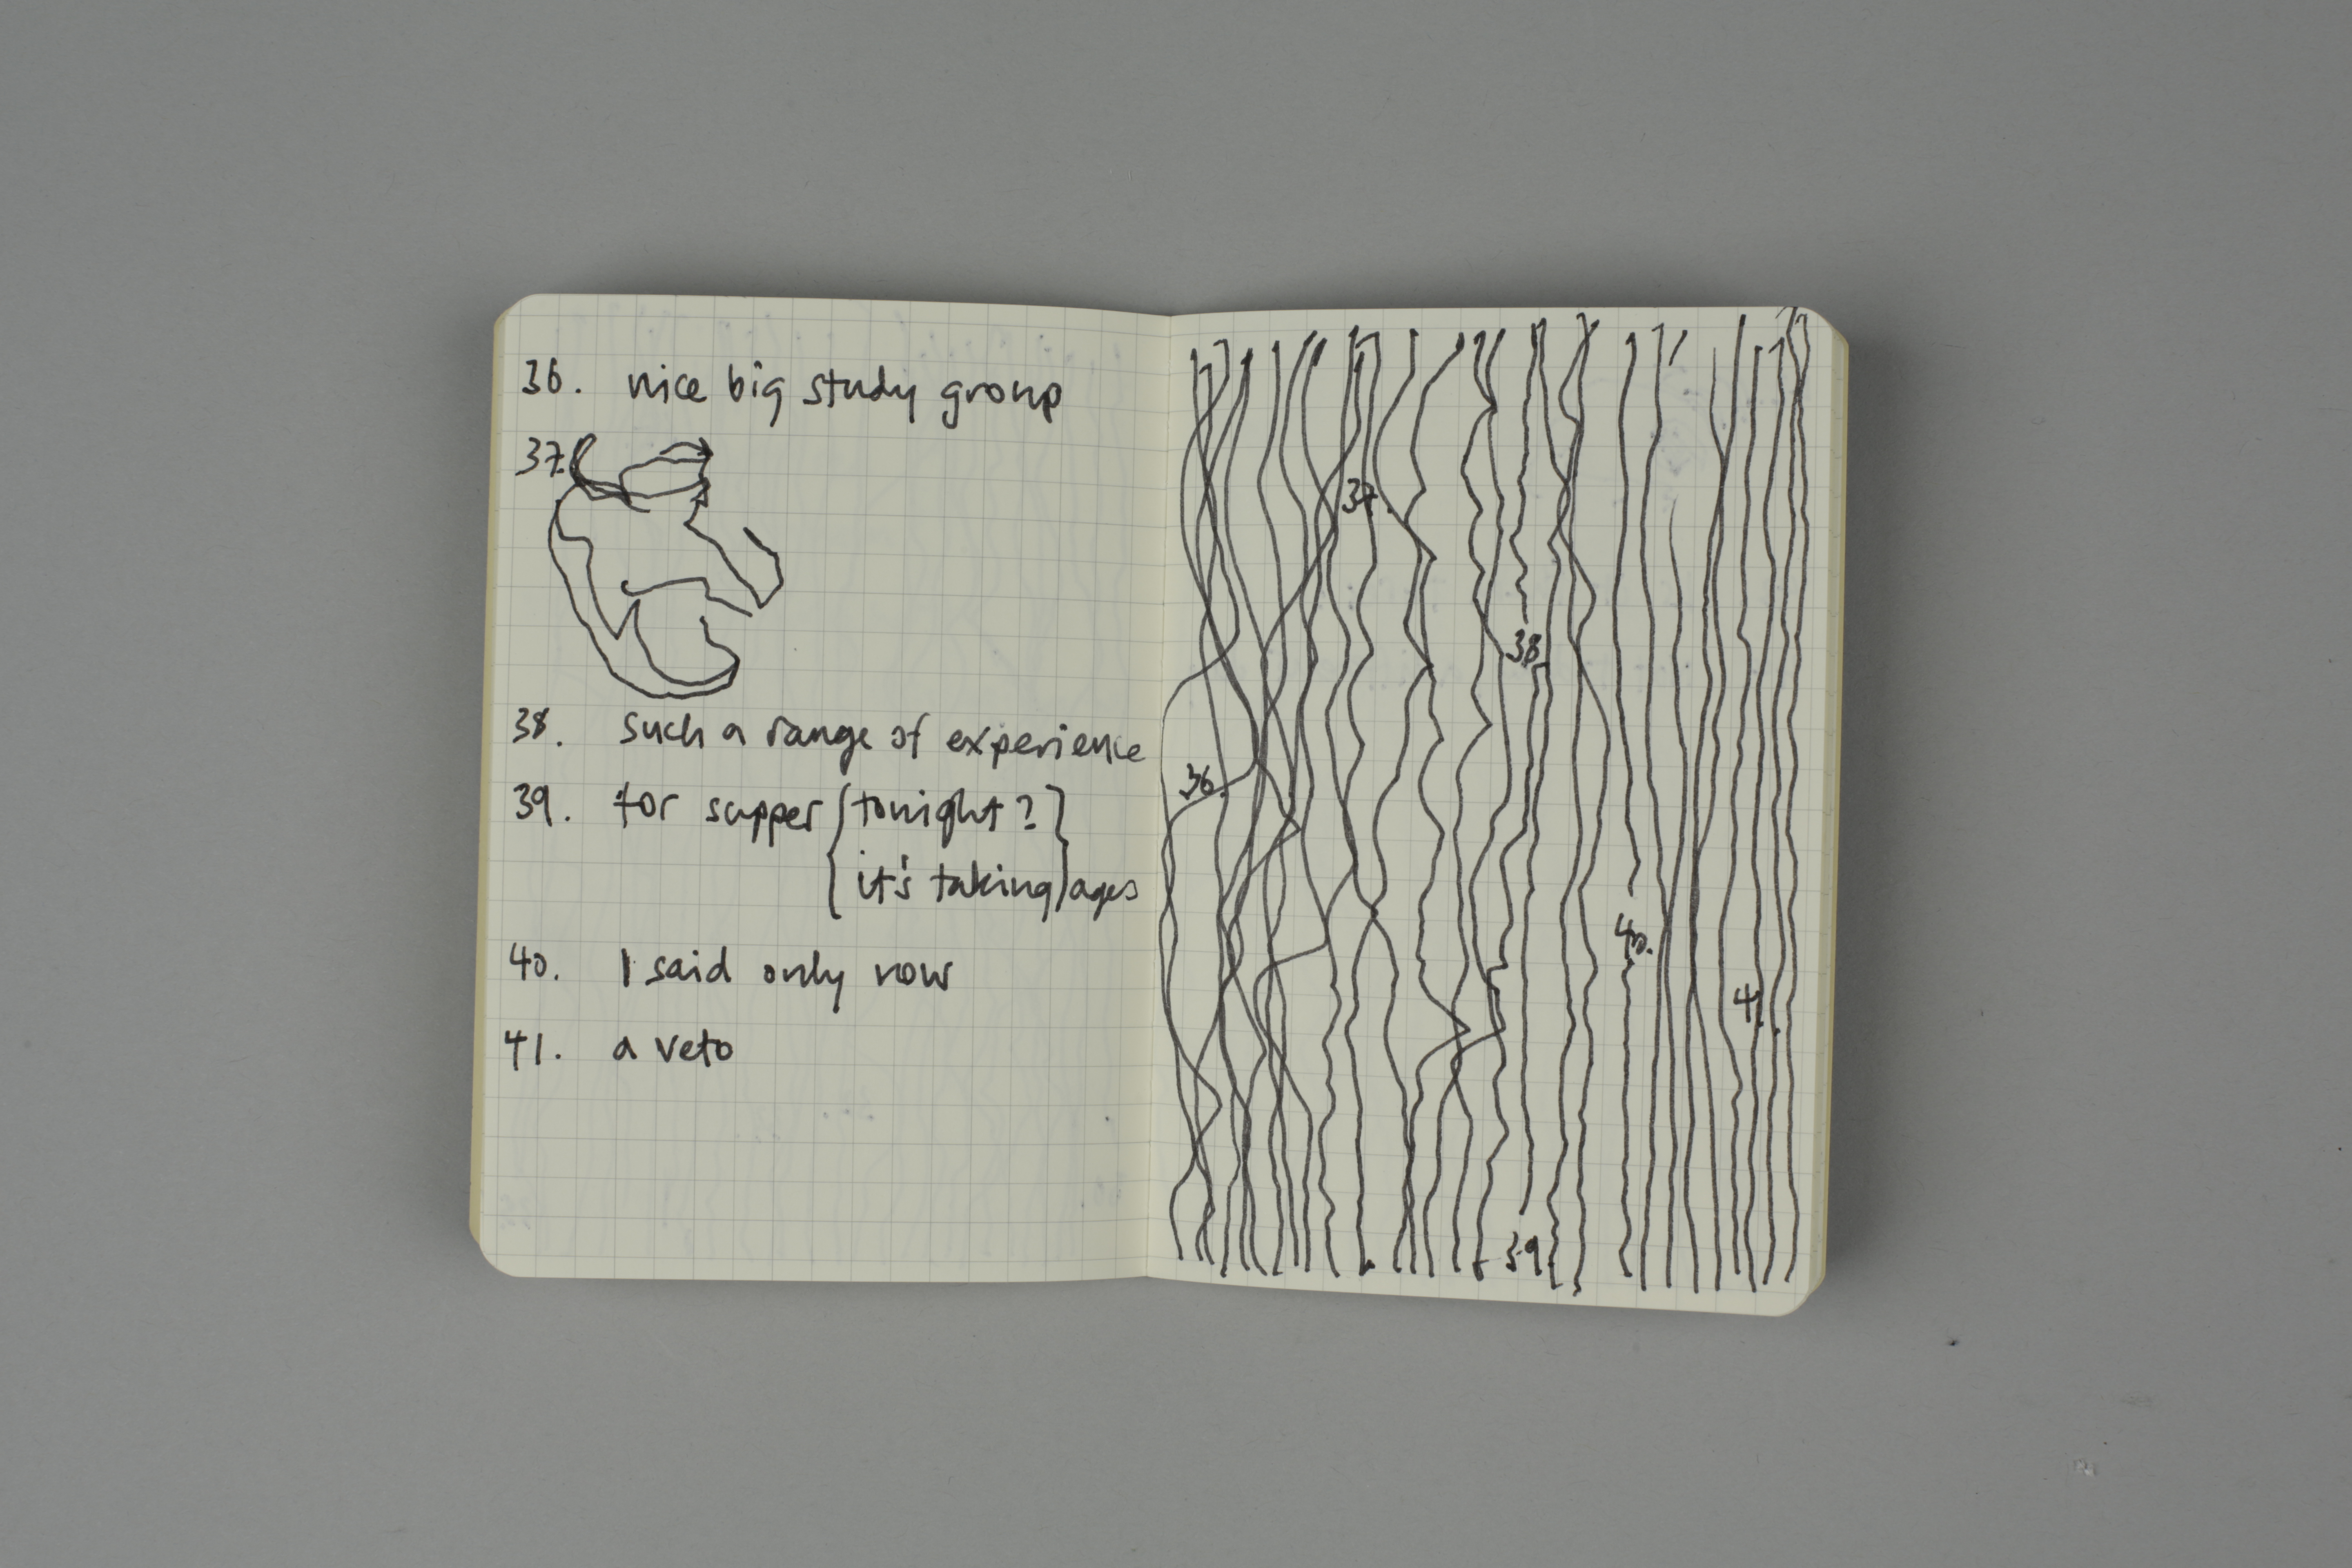 36. nice big study group
37.
38. such a range of experience
39. for supper { tonight? }
{ it's taking } ages
40. I said only now
41. a veto
37.
38.
36.
40.
41.
39.